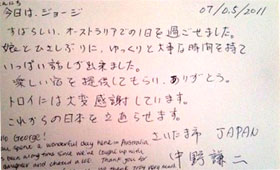 こんにち
今日は、ジョージ 07/05/2011
すばらしい、オーストラリアでの1日を過ごせました。
娘とひさしぶりに、ゆっくりと大事な時間を持て
いっぱい話しが出来ました。
楽しい宿を提供してもらい、ありがとう。
トロイには大変感謝しています。
これからの日本を立直らせます。
さいたま市 JAPAN
中野 謙二
George!
a wonderful day here in Australia
a long time since we caught up with
daughter and chatted a lot. Thank you for